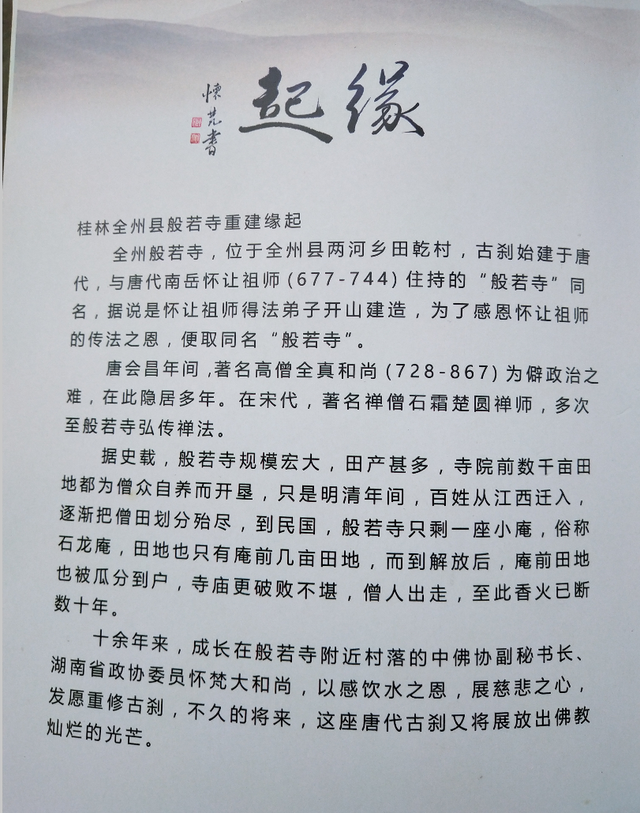 缘起
怀梵书
桂林全州县般若寺重建缘起
全州般若寺，位于全州县两河乡田乾村，古刹始建于唐
代，与唐代南岳怀让祖师(677-744)住持的“般若寺”同
名，据说是怀让祖师得法弟子开山建造，为了感恩怀让祖师
的传法之恩，便取同名“般若寺”。
唐会昌年间,著名高僧全真和尚(728-867)为僻政治之
难，在此隐居多年。在宋代，著名禅僧石霜楚圆禅师，多次
至般若寺弘传禅法。
据史载，般若寺规模宏大，田产甚多，寺院前数千亩田
地都为僧众自养而开垦，只是明清年间，百姓从江西迁入，
逐渐把僧田划分殆尽，到民国，般若寺只剩一座小庵，俗称
石龙庵，田地也只有庵前几亩田地，而到解放后，庵前田地
也被瓜分到户，寺庙更破败不堪，僧人出走，至此香火已断
数十年。
十余年来，成长在般若寺附近村落的中佛协副秘书长、
湖南省政协委员怀梵大和尚，以感饮水之恩，展慈悲之心，
发愿重修古刹，不久的将来，这座唐代古刹又将展放出佛教
灿烂的光芒。